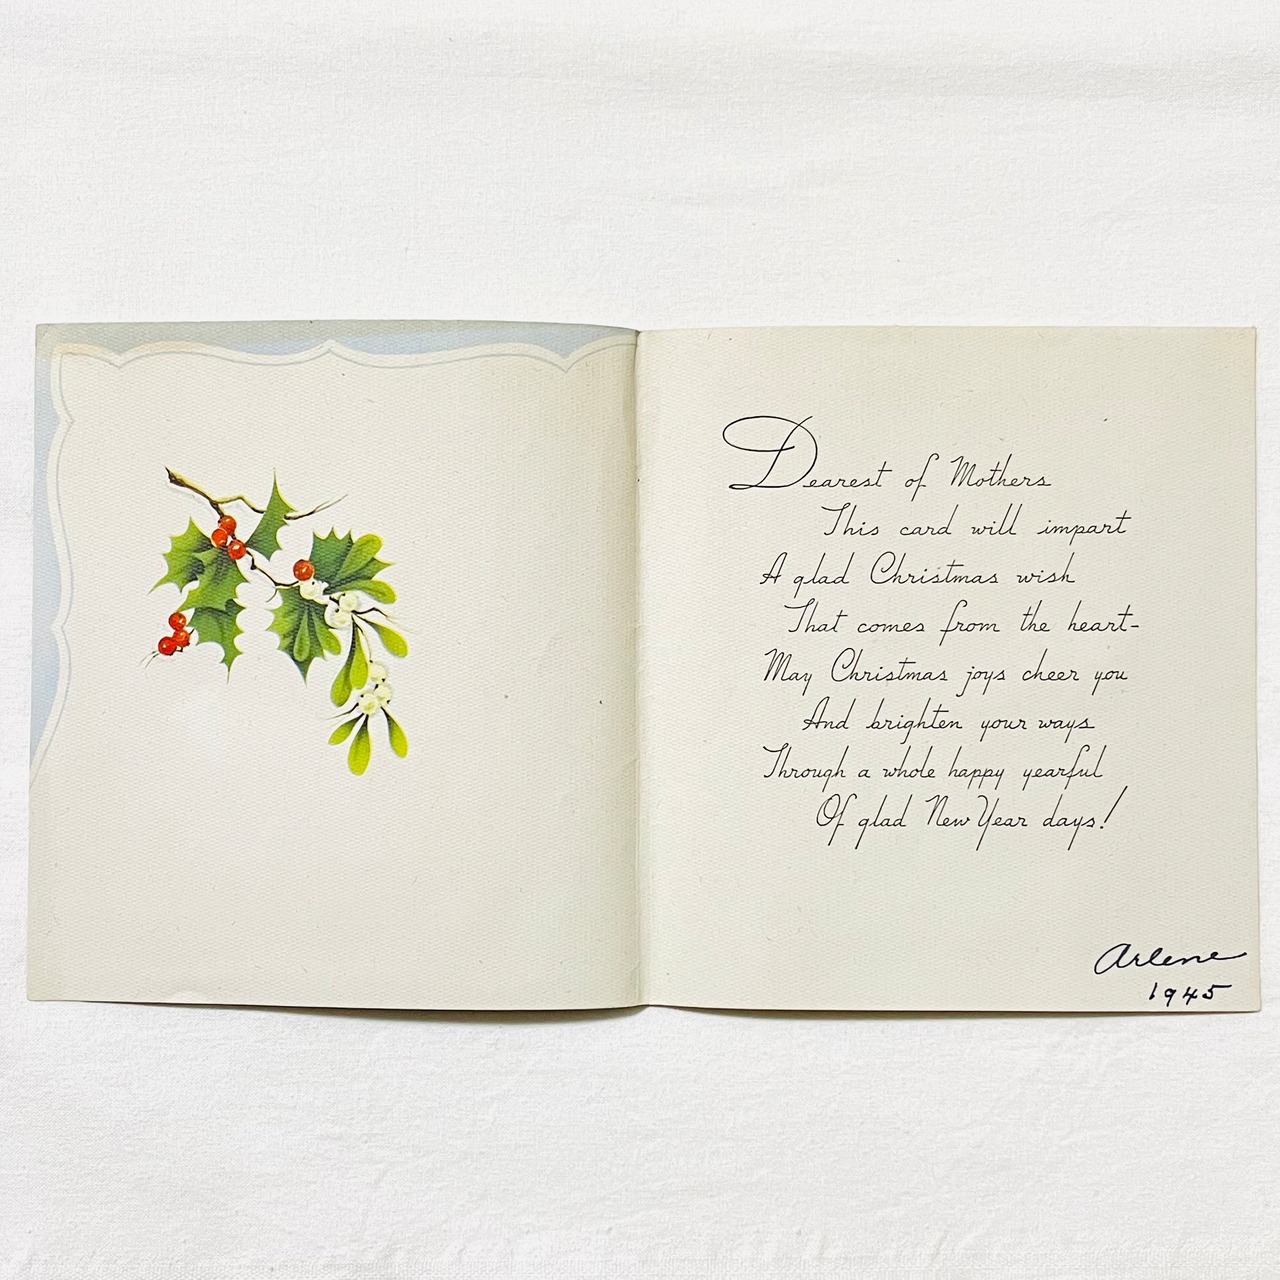 Dearest of Mothers
This card will impart
A glad Christmas wish
That comes from the heart-
May Christmas joys cheer you
And brighten your ways
Through a whole happy yearful
Of glad New Year days!
Arlene
1945